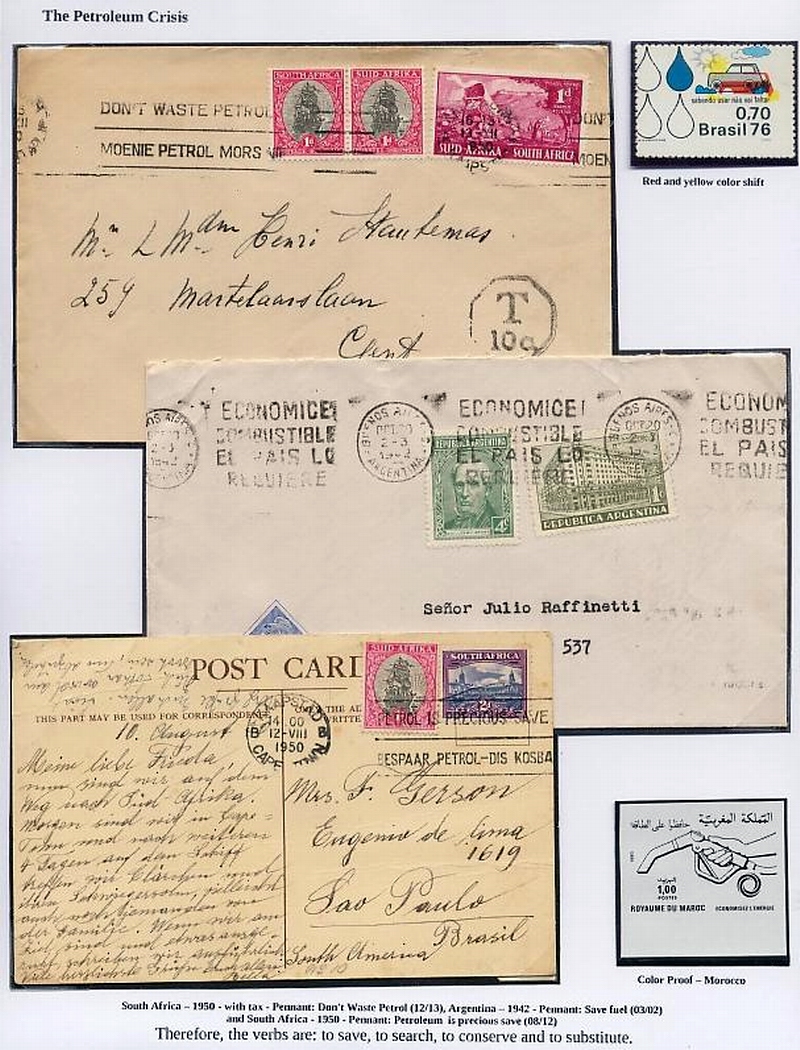 The Petroleum Crisis
SOUTH AFRICA
SUID-AFRIKA
1D
1D
1D
SUID-AFRIKA · SOUTH AFRICA
DON'T WASTE PETROL
MOENIE PETROL MORS
DON'T
MOEN
sabendo usar não vai faltar
0,70
Brasil 76
Red and yellow color shift
Henri
259 Martelaarslaan
Gent
T
10c
ECONOMICE
COMBUSTIBLE
EL PAIS LO
REQUIERE
BUENOS AIRES
OCT 20
2-3
1942
ARGENTINA
ECONOMICE
COMBUSTIBLE
EL PAIS LO
REQUIERE
BUENOS AIRES
OCT 20
2-3
ECONOM
COMBUST
EL PAIS
REQUIE
REPUBLICA ARGENTINA
4c
1c
REPUBLICA ARGENTINA
Señor Julio Raffinetti
537
POST CARD
THIS PART MAY BE USED FOR CORRESPONDENCE
SUID-AFRIKA
SOUTH AFRICA
PETROL IS PRECIOUS-SAVE
BESPAAR PETROL-DIS KOSBA
14 00
B 12-VIII B
1950
10. August
Meine liebe Frieda,
nun sind wir auf dem
Weg nach Süd Afrika.
Morgen sind wir in Cape-
Town und nach weiteren
4 Tagen auf dem Schiff
treffen wir Clärchen und
auch noch jemanden von
der Familie. Wenn wir am
Ziel sind und etwas ausge-
ruht schreiben wir ausführlich
Mrs. F. Gerson
Eugenio de Lima
1619
Sao Paulo
Brasil
South America
المملكة المغربية
حافظوا على الطاقة
1,00
POSTES
ROYAUME DU MAROC ECONOMISEZ L'ENERGIE
Color Proof – Morocco
South Africa – 1950 - with tax - Pennant: Don't Waste Petrol (12/13), Argentina – 1942 - Pennant: Save fuel (03/02)
and South Africa - 1950 - Pennant: Petroleum is precious save (08/12)
Therefore, the verbs are: to save, to search, to conserve and to substitute.